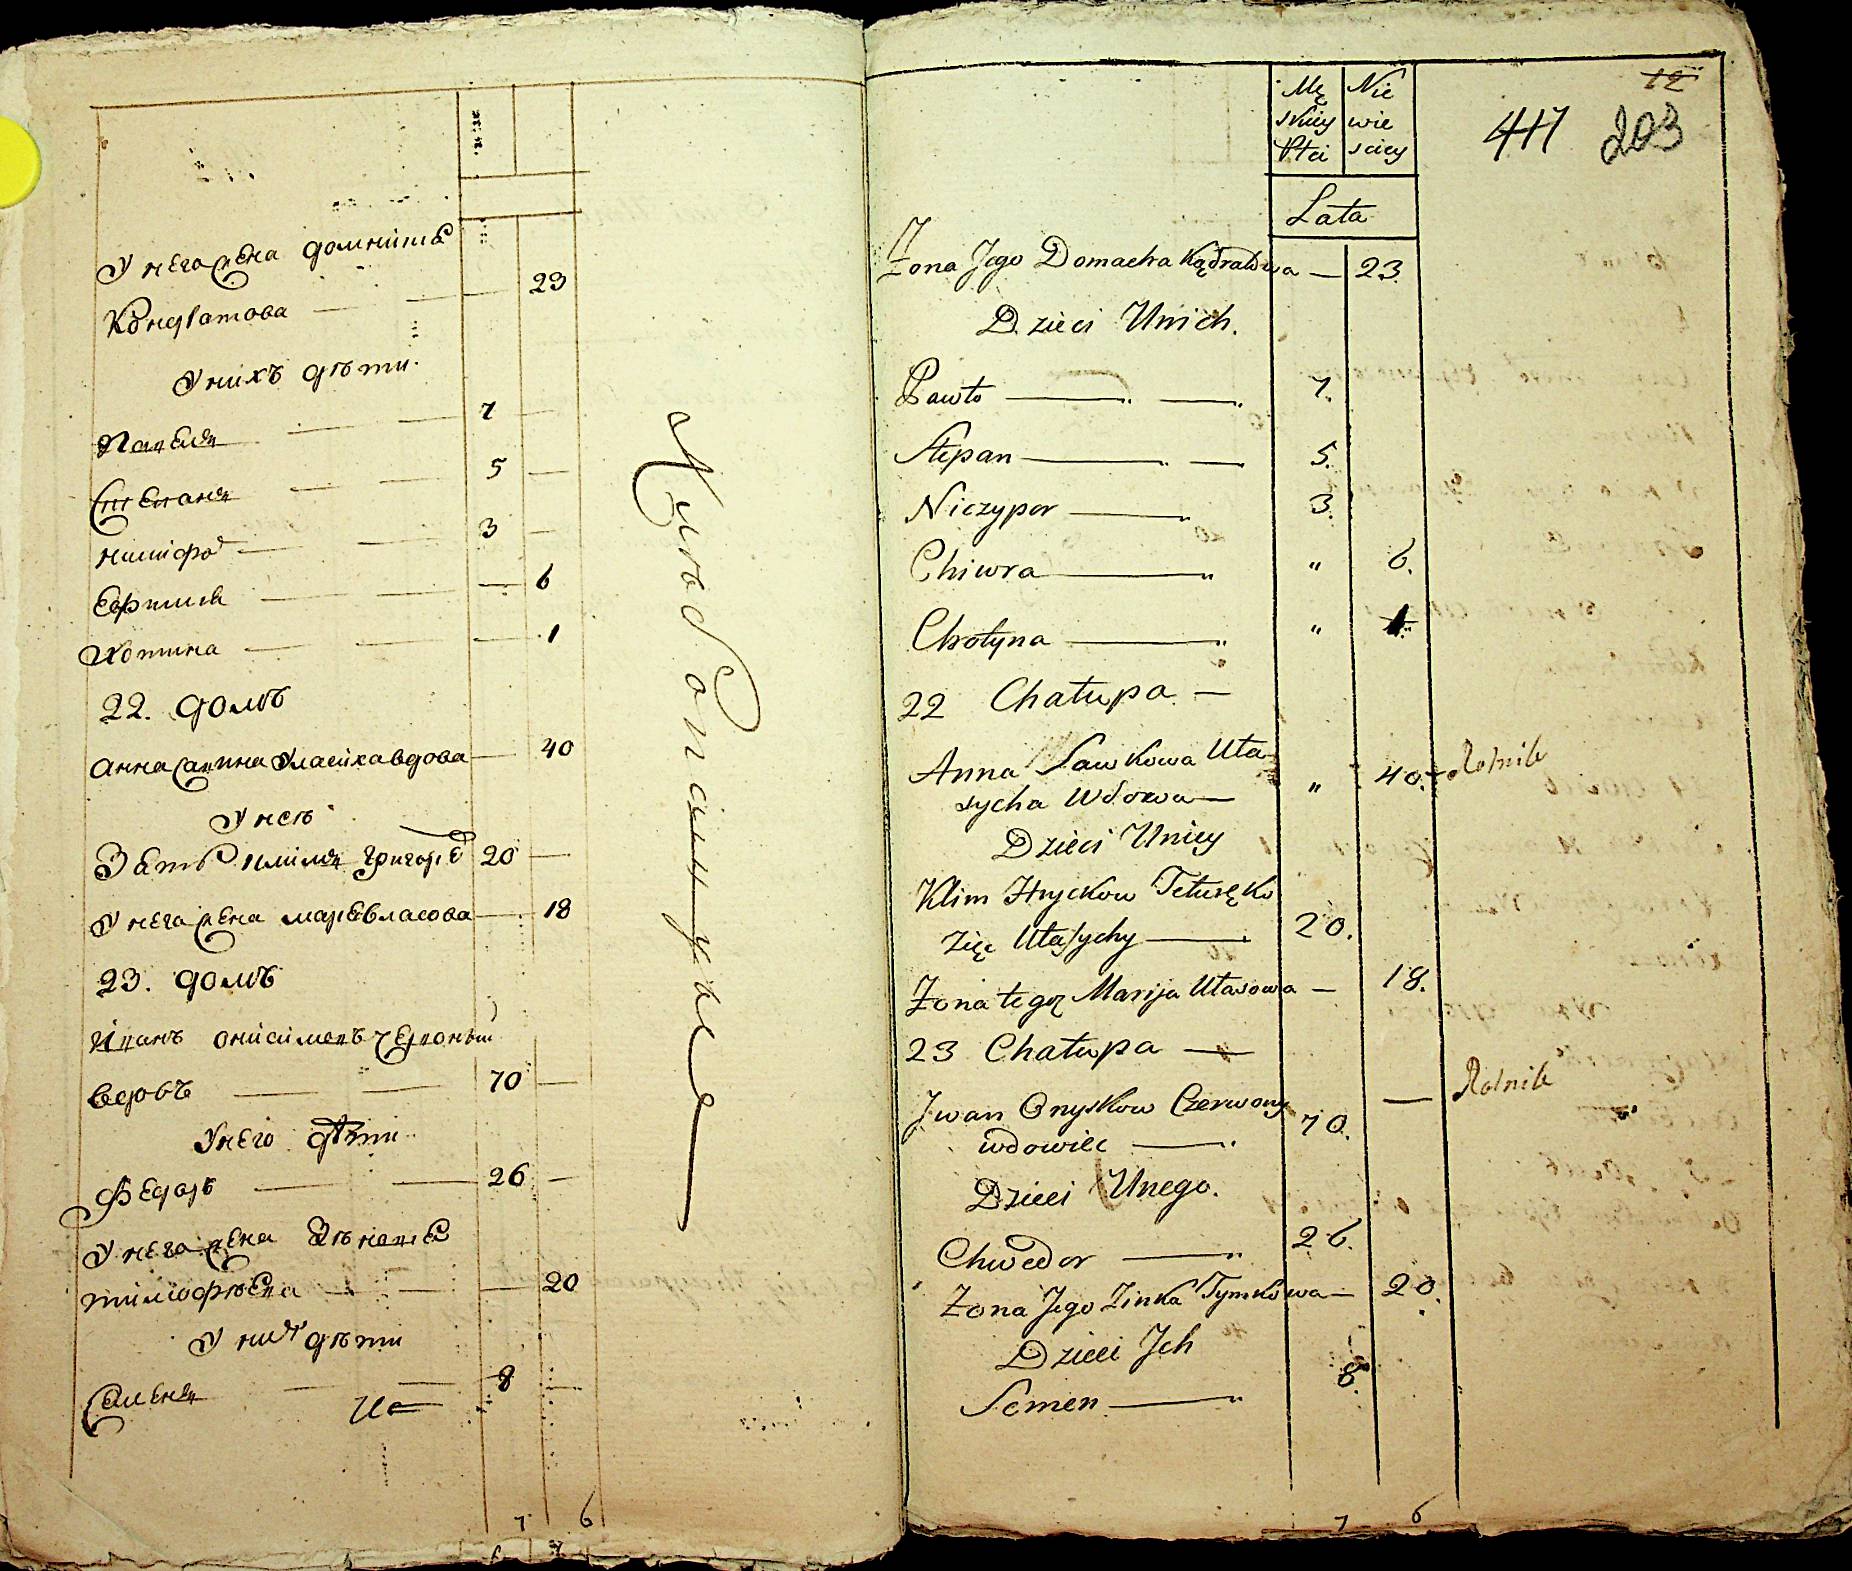 У него жена домникіѣ
Кондратова — 23
У нихъ дѣти
Павелъ — 7 —
Степанъ — 5 —
никифоръ — 3 —
Ефимія — 6
Хотина — 1
22. домъ
Анна Савина Уласиха вдова — 40
У неѣ
Зять климъ григорѣ 20 —
У него жена марія власова — 18
23. домъ
Иванъ онисимовъ Червоный
вдовъ — 70 —
У него дѣти
Федоръ — 26 —
У него жена Зѣновія
тимофѣева — 20
У них дѣти
Семенъ — 8 —
7 6
Mę Nie
skiey wie
Płci sciey
12
417 203
Lata
Żona Jego Domacha Kądratowa — 23.
Dzieci Unich.
Pawło — 7.
Stepan — 5.
Niczypor — 3.
Chiwra — " 6.
Chotyna — " 1.
22 Chałupa —
Anna Sawkowa Uła
sycha Wdowa — " 40. Rolnik
Dzieci Uniey
Klim Hryckow Tetusęko
Zięc Ułasychy — 20.
Żona tegoż Marija Ułasowa — 18.
23 Chałupa —
Jwan Onyskow Czerwony
wdowiec — 70. — Rolnik
Dzieci Unego.
Chwedor — 26.
Żona Jego Zinka Tymkowa — 20.
Dzieci Jch
Semen — 8.
7 6